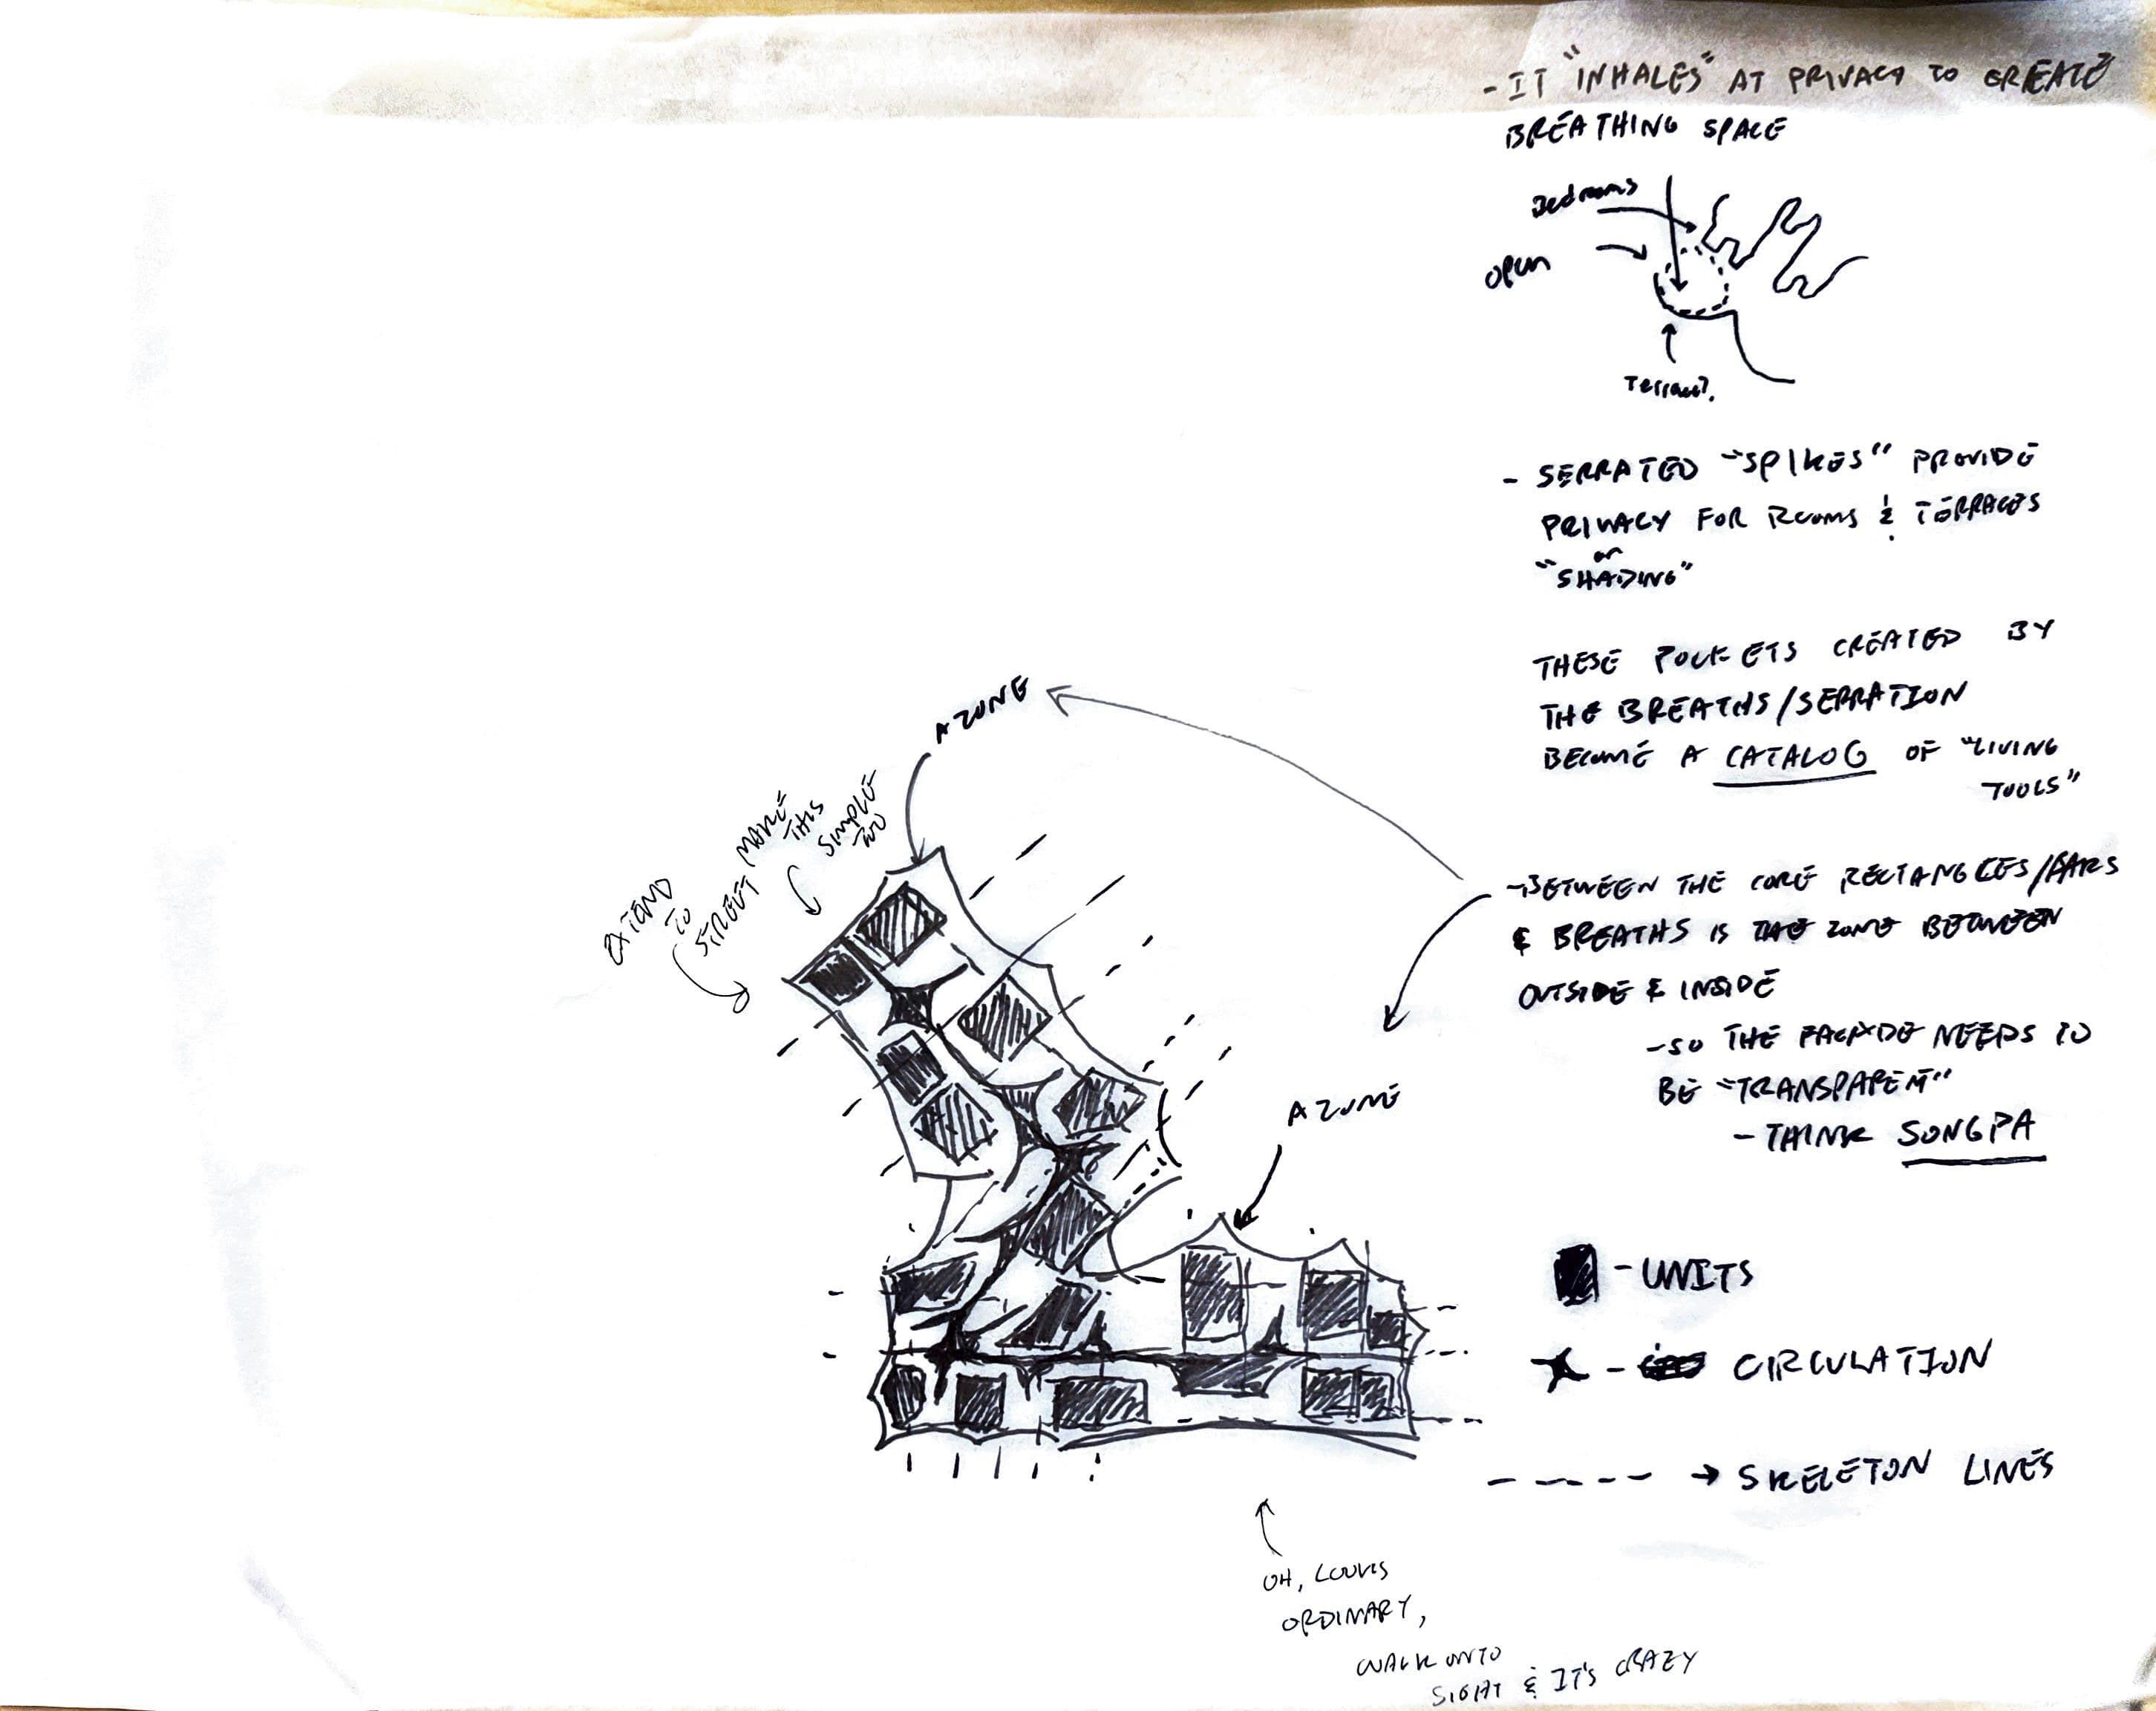 - IT "INHALES" AT PRIVACY TO CREATE
BREATHING SPACE
Bedrooms
open
Terrace?
- SERRATED "SPIKES" PROVIDE
PRIVACY FOR ROOMS & TERRACES
or
"SHADING"
THESE POCKETS CREATED BY
THE BREATHS/SERRATION
BECOME A CATALOG OF "LIVING
TOOLS"
A ZONE
MAKE
THIS
SIMPLE
TOO
EXTEND
TO
STREET
- BETWEEN THE CORE RECTANGLES/BARS
& BREATHS IS THE ZONE BETWEEN
OUTSIDE & INSIDE
- SO THE FACADE NEEDS TO
BE "TRANSPARENT"
- THINK SONGPA
A ZONE
- UNITS
- CIRCULATION
→ SKELETON LINES
OH, LOOKS
ORDINARY,
WALK ONTO
SIGHT & IT'S CRAZY